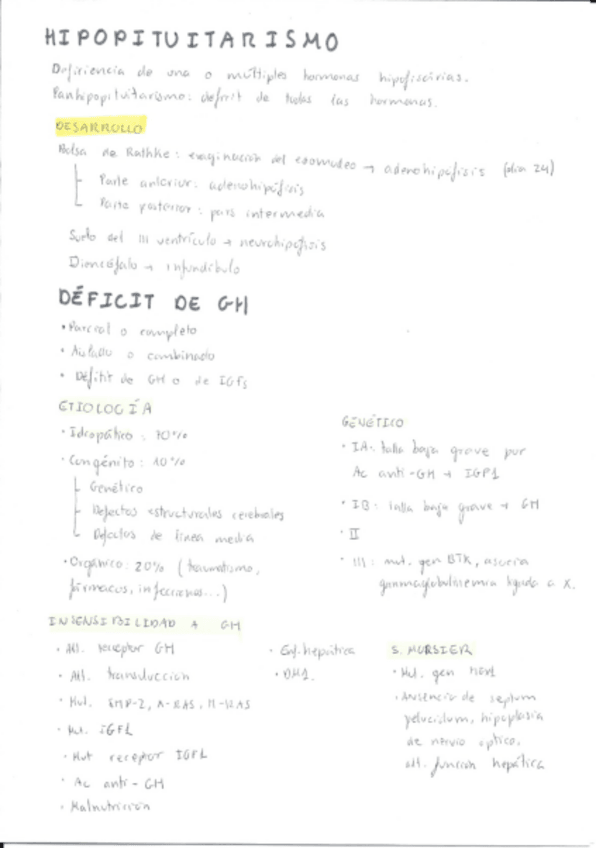 HIPOPITUITARISMO
Deficiencia de una o múltiples hormonas hipofisarias.
Panhipopituitarismo: déficit de todas las hormonas.
DESARROLLO
Bolsa de Rathke: evaginación del estomodeo → adenohipófisis (día 24)
Parte anterior: adenohipófisis
Parte posterior: pars intermedia
Suelo del III ventrículo → neurohipófisis
Diencéfalo → infundíbulo
DÉFICIT DE GH
• Parcial o completo
• Aislado o combinado
• Déficit de GH o de IGFs
ETIOLOGÍA
• Idiopático: 70%
• Congénito: 10%
Genético
Defectos estructurales cerebrales
Defectos de línea media
• Orgánico: 20% (traumatismo,
fármacos, infecciones...)
GENÉTICO
• IA: talla baja grave por
Ac anti-GH → IGF1
• IB: talla baja grave → GH
• II
• III: mut. gen BTK, asocia
gammaglobulinemia ligada a X.
INSENSIBILIDAD A GH
• Alt. receptor GH
• Alt. transducción
• Mut. SHP-2, K-RAS, H-RAS
• Mut. IGF1
• Mut receptor IGF1
• Ac anti-GH
• Malnutrición
• Enf. hepática
• DM1.
S. MORSIER
• Mut. gen HESX1
• Ausencia de septum
pelucidum, hipoplasia
de nervio óptico,
alt. función hepática